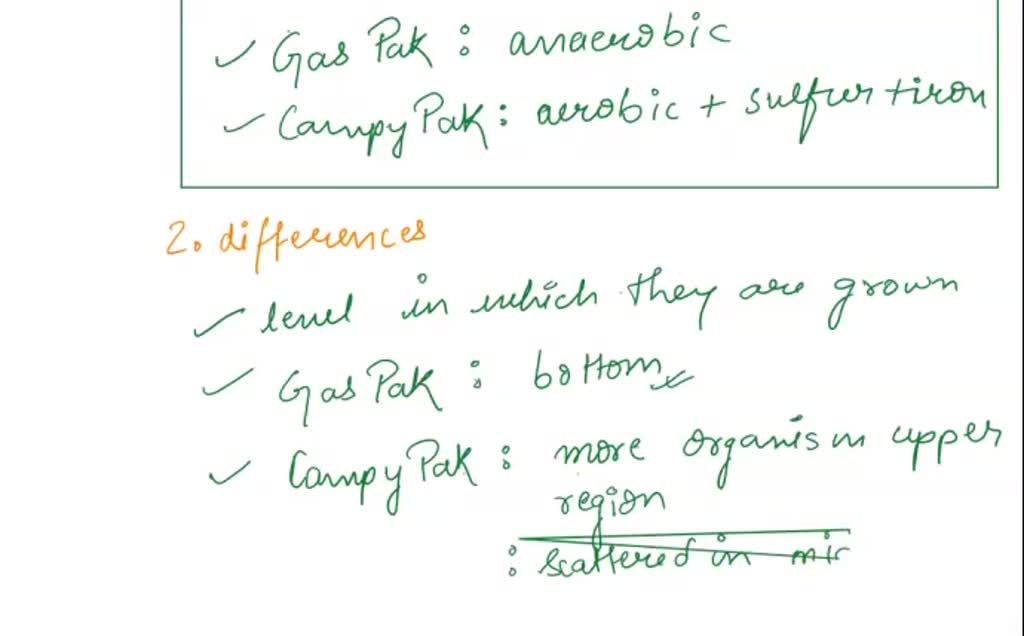 Gas Pak : anaerobic
Campy Pak : aerobic + sulfur + iron
2. differences
level in which they are grown
Gas Pak : bottom
Campy Pak : more organism upper
region
: scattered in mic